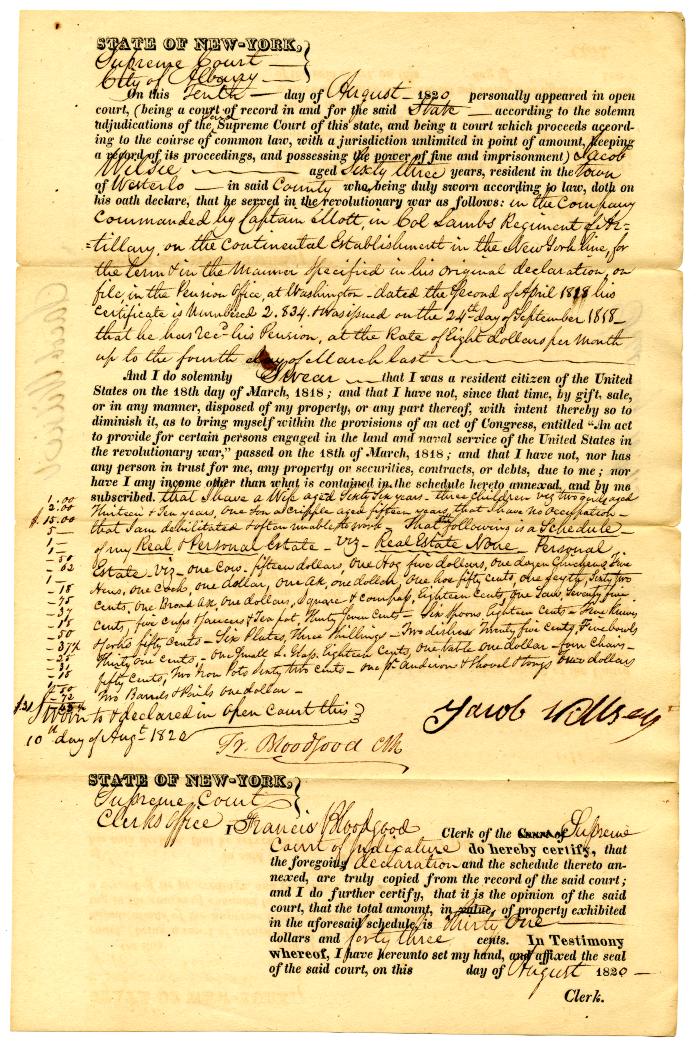 STATE OF NEW-YORK,
Supreme Court
City of Albany
On this Tenth day of August 1820 personally appeared in open
court, (being a court of record in and for the said State according to the solemn
adjudications of the said Supreme Court of this state, and being a court which proceeds accord-
ing to the course of common law, with a jurisdiction unlimited in point of amount, keeping
a record of its proceedings, and possessing the power of fine and imprisonment) Jacob
Wilsie aged Sixty three years, resident in the Town
of Westerlo in said County who, being duly sworn according to law, doth on
his oath declare, that he served in the revolutionary war as follows: in the Company
Commanded by Captain Mott, in Col Lambs Regiment of Ar-
=tillary, on the Continental Establishment in the New York line, for
the term & in the Manner Specified in his original declaration, on
file, in the Pension Office, at Washington - dated the Second of April 1818 his
Certificate is Numbered 2.834. & was issued on the 24th day of September 1818 -
that he has recd his Pension, at the Rate of Eight dollars per month
up to the fourth day of March last
And I do solemnly Swear that I was a resident citizen of the United
States on the 18th day of March, 1818; and that I have not, since that time, by gift, sale,
or in any manner, disposed of my property, or any part thereof, with intent thereby so to
diminish it, as to bring myself within the provisions of an act of Congress, entitled “An act
to provide for certain persons engaged in the land and naval service of the United States in
the revolutionary war,” passed on the 18th of March, 1818; and that I have not, nor has
any person in trust for me, any property or securities, contracts, or debts, due to me; nor
have I any income other than what is contained in the schedule hereto annexed, and by me
subscribed. that I have a Wife aged Sixty Six years - three children viz two girls aged
Thirteen & Ten years, One Son a cripple aged fifteen years, that I have no occupation -
that I am debilitated & often unable to work - That following is a Schedule
of my Real & Personal Estate - Viz - Real Estate None - Personal
Estate - viz - one Cow - fifteen dollars, one Hog five dollars, one dozen Chickens, Five
Hens, one Cock, one dollar, one ax, one dollar, one hoe fifty cents, one scythe, Sixty two
Cents, one Broad ax, one dollars, Square & Compass, Eighteen Cents, one Saw, Seventy five
Cents, five Cups Saucers & Tea pot, Thirty Seven Cents - Six Spoons Eighteen Cents - Five Knives
forks fifty Cents - Six Plates, Three Shillings - Two dishes Twenty five Cents, Five bowls
Thirty one Cents, - one Small L. Glass, Eighteen Cents, one table one dollar - four Chairs -
fifty Cents, Two Iron Pots Sixty two cents - one pr. Andiron & Shovel & tongs dollars
Two Barrels & Pails one dollar -
1.00
2.00
$.15.00
5 -
1 -
- 50
- 62
1 -
- 18
- 75
- 37
- 18
- 50
- 37½
- 25
- 31
- 18
$31
Sworn to & declared in open Court this
10th day of Augt. 1820
Fr. Bloodgood Clk
Jacob Willsey
STATE OF NEW-YORK,
Supreme Court
Clerks Office
I Francis Bloodgood Clerk of the Court of Supreme
Court of Judicature do hereby certify, that
the foregoing declaration and the schedule thereto an-
nexed, are truly copied from the record of the said court;
and I do further certify, that it is the opinion of the said
court, that the total amount, in value, of property exhibited
in the aforesaid schedule, is Thirty One
dollars and forty three cents. In Testimony
whereof, I have hereunto set my hand, and affixed the seal
of the said court, on this day of August 1820 -
Clerk.